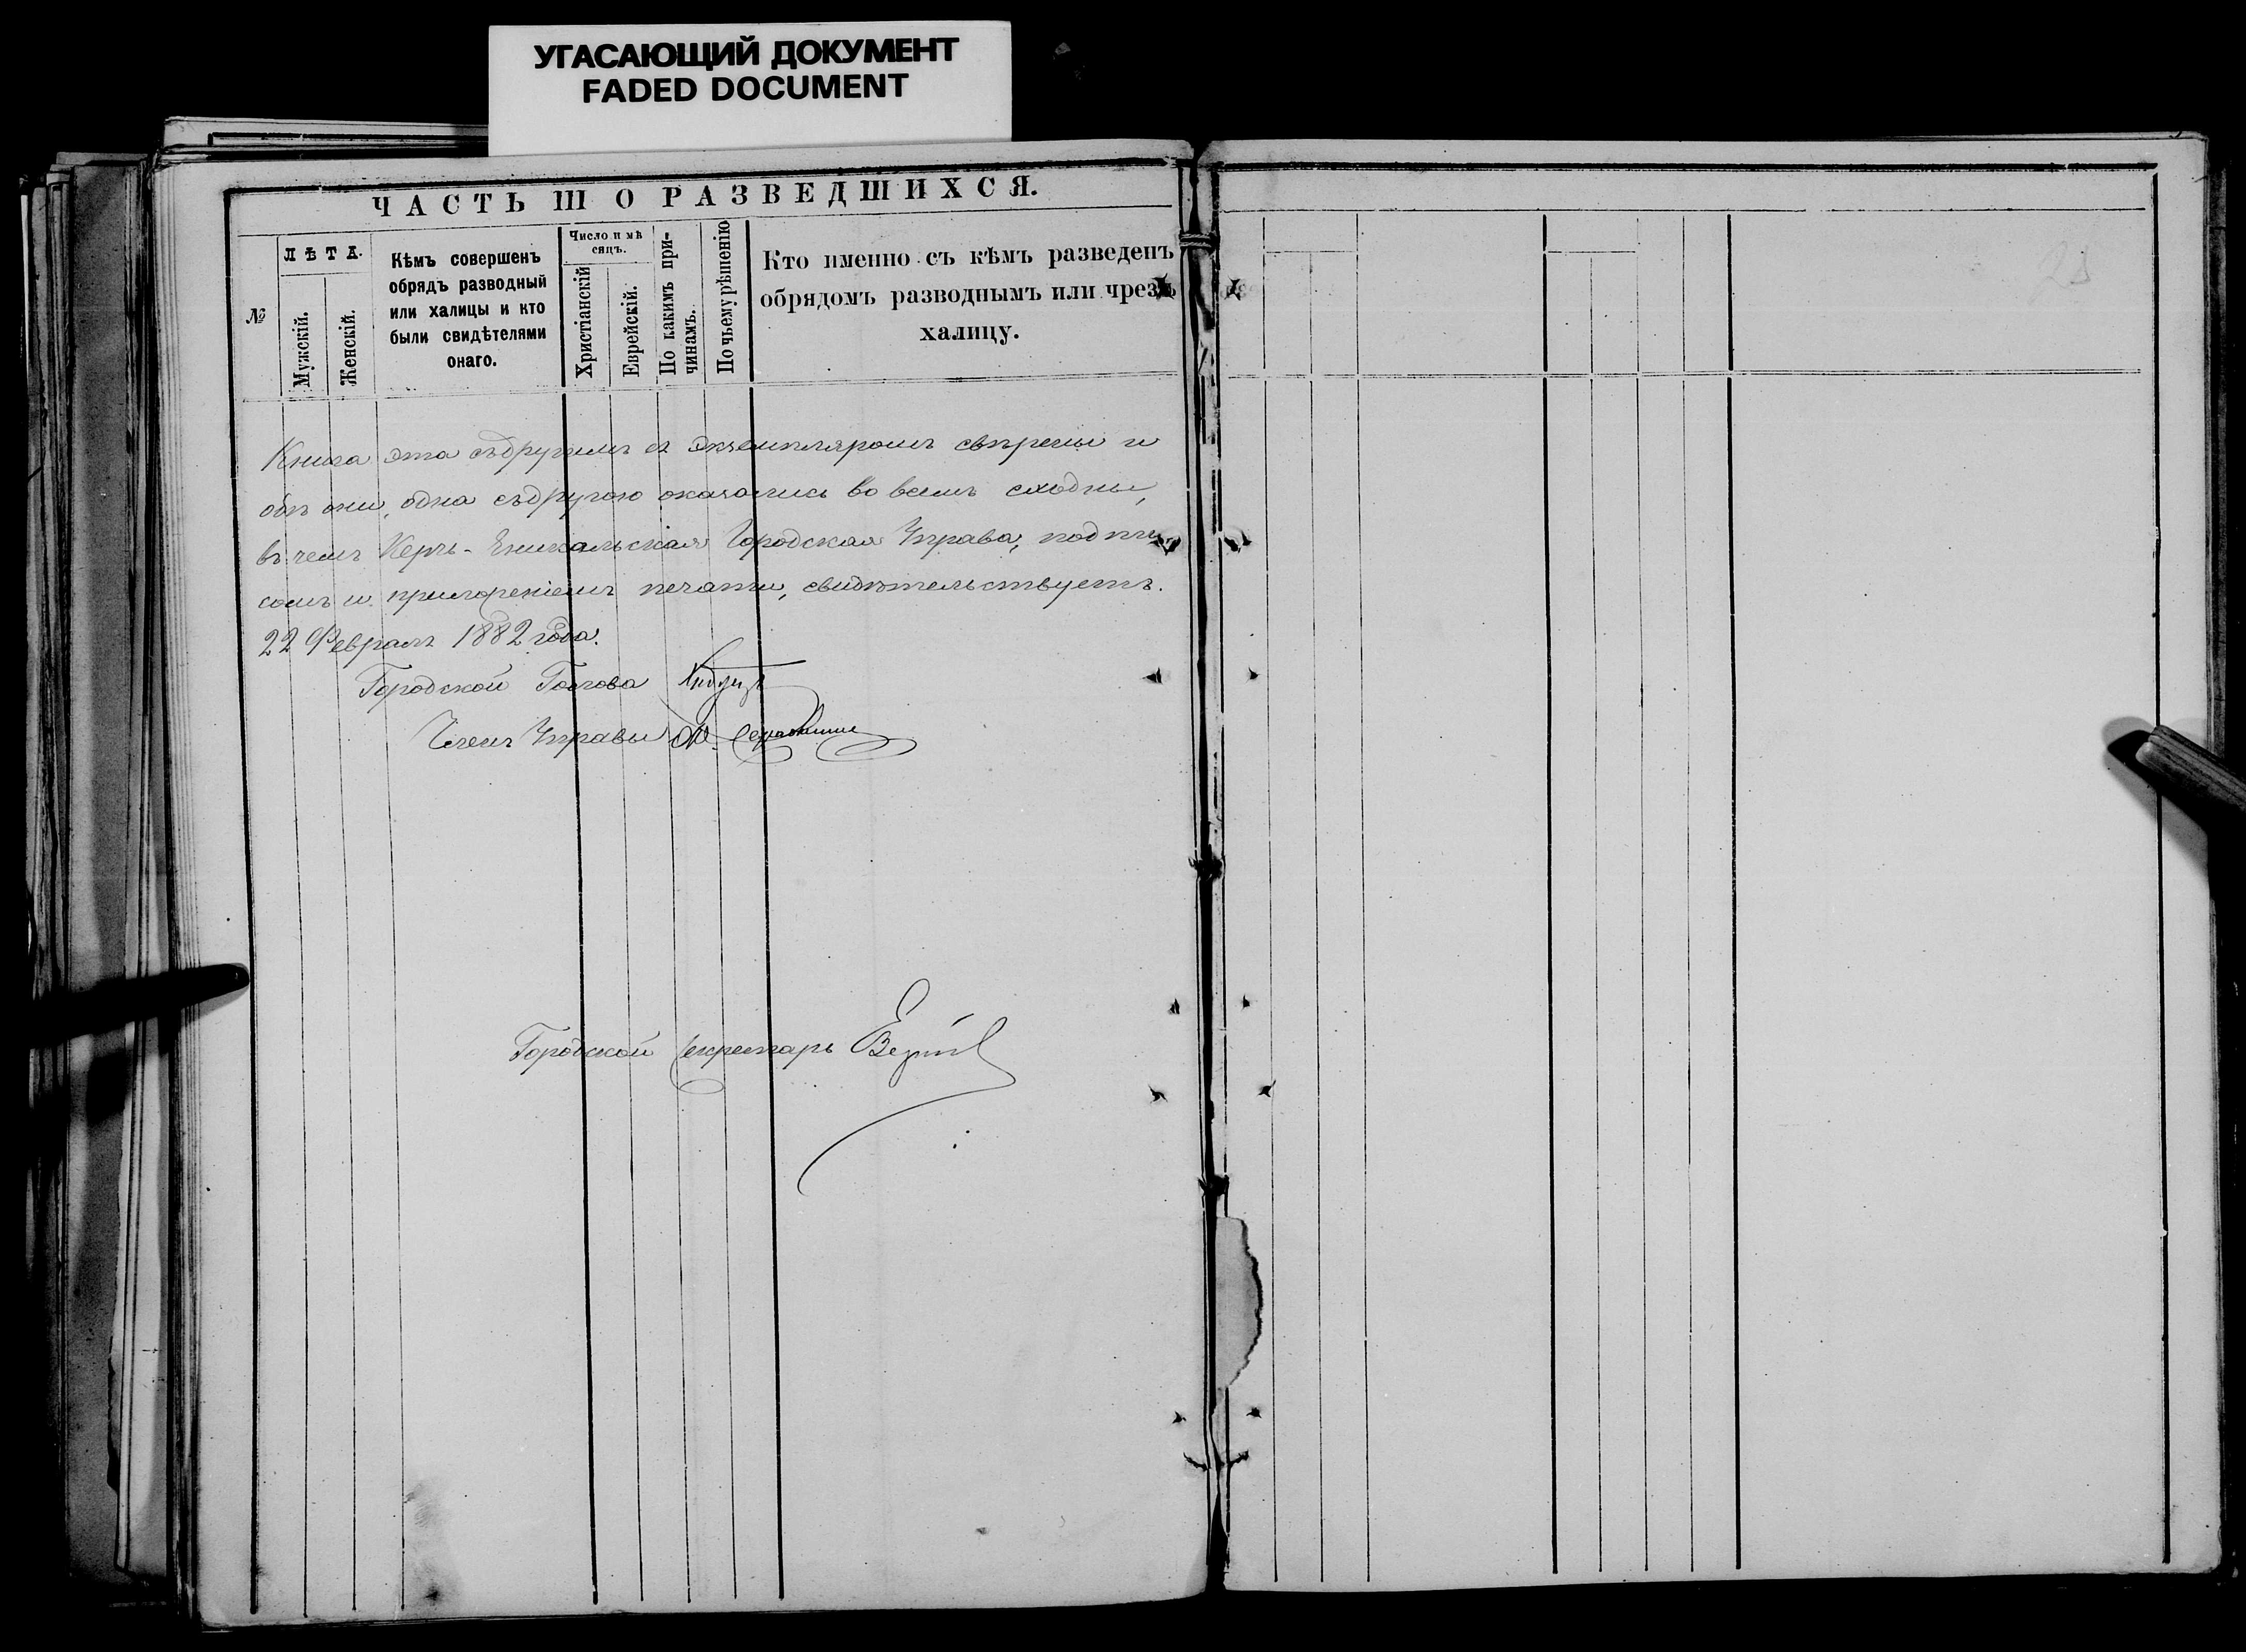 УГАСАЮЩИЙ ДОКУМЕНТ
FADED DOCUMENT
ЧАСТЬ III О РАЗВЕДШИХСЯ.
№
ЛѢТА.
Мужскій.
Женскій.
Кѣмъ совершенъ
обрядъ разводный
или халицы и кто
были свидѣтелями
онаго.
Число и мѣ
сяцъ.
Христіанскій
Еврейскій.
По какимъ при-
чинамъ.
По чьему рѣшенію
Кто именно съ кѣмъ разведенъ
обрядомъ разводнымъ или чрезъ
халицу.
Книга эта съ другимъ ея экземпляромъ свѣрены и
обѣ они, одна съ другою оказались во всемъ сходны,
въ чемъ Керчь-Еникальская Городская Управа, подпи-
сомъ и приложеніемъ печати, свидѣтельствуетъ.
22 Февраля 1882 года.
Городской Голова
Членъ Управы
Городской Секретарь
25